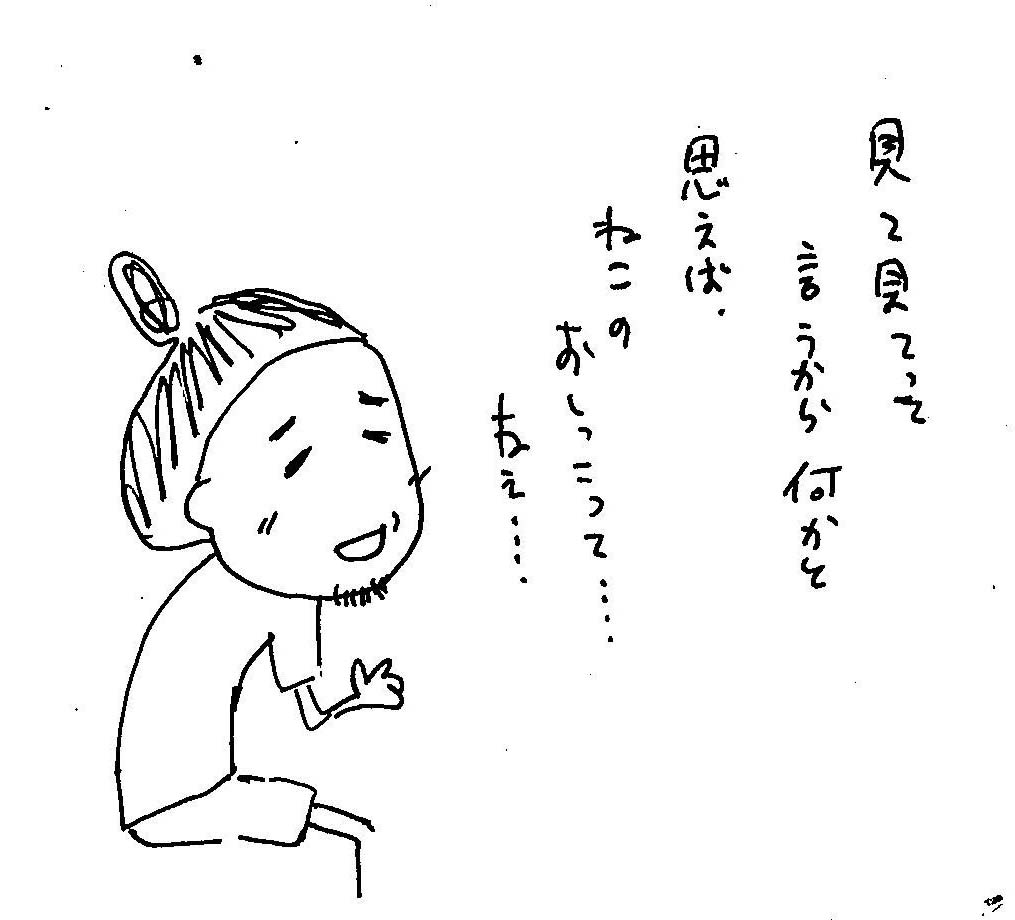 見て見てって
言うから何かと
思えば、
ねこの
おしっこって……
ねえ……